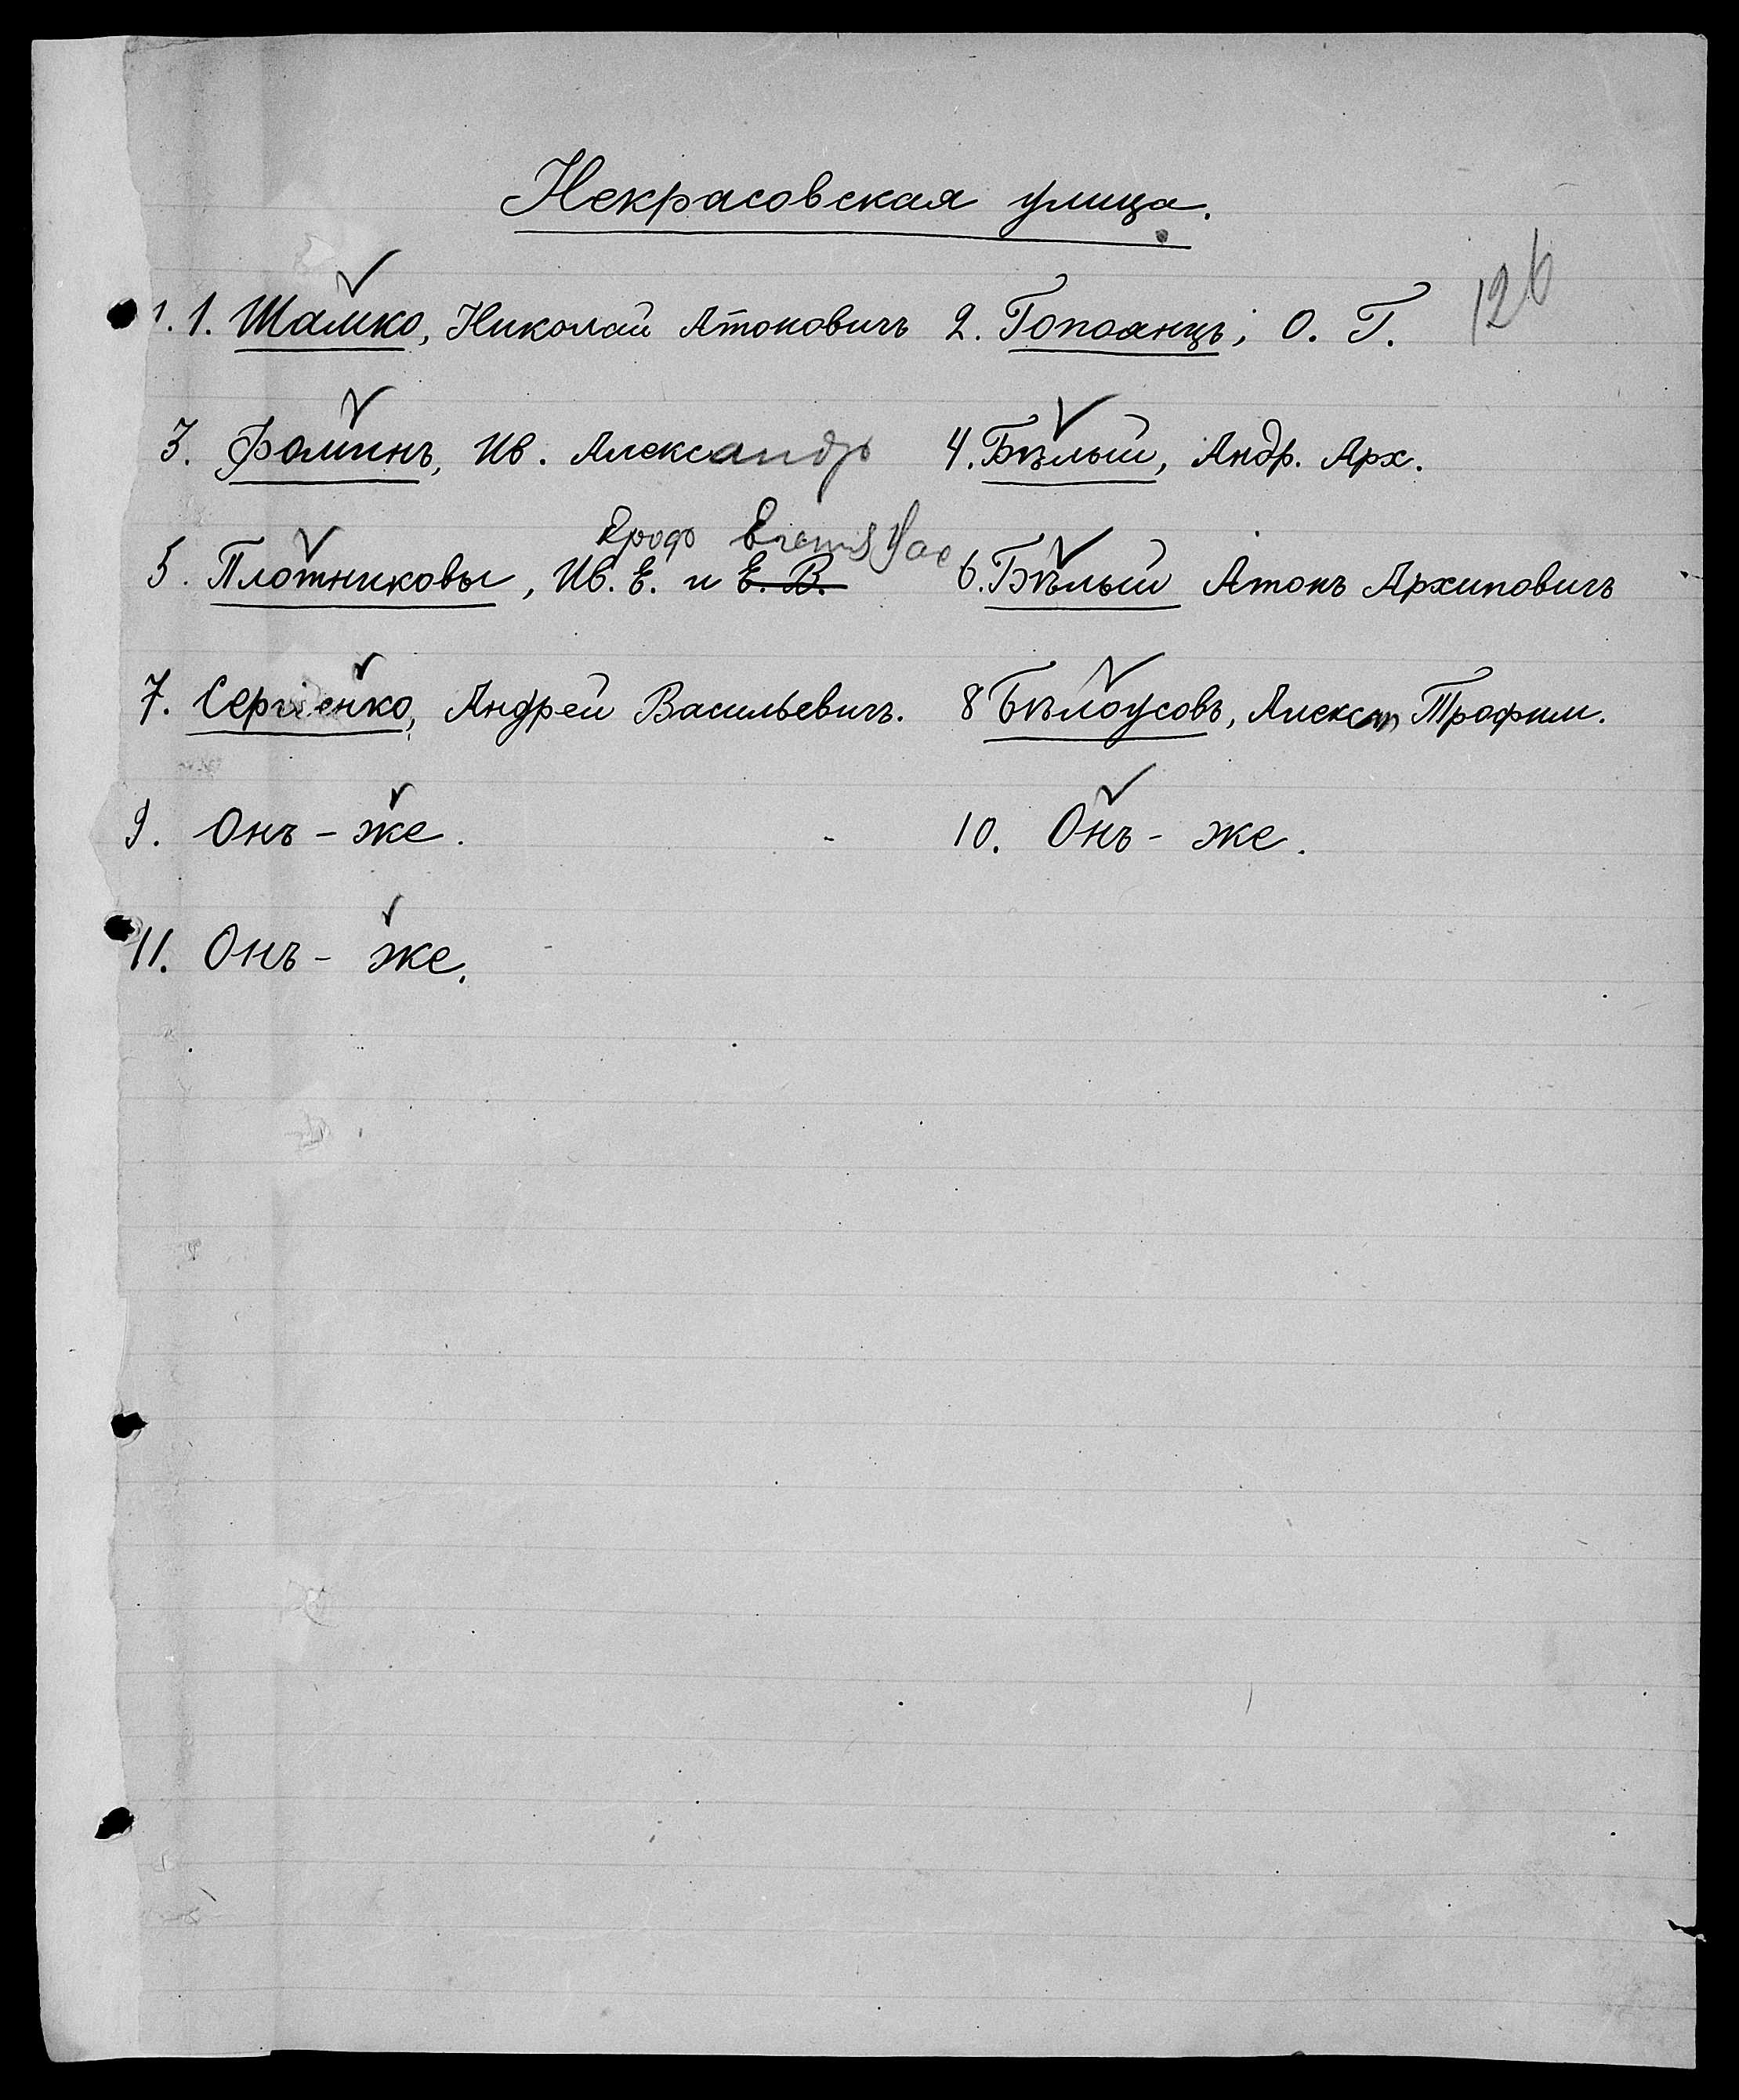 Некрасовская улица.
126
1. 1. Шамко, Николай Атоновичъ 2. Гопоянцъ, О. Г.
3. Фоминъ, Ив. Александр 4. Бѣлый, Андр. Арх.
Ероф
5. Плотниковы, Ив. Е. и Е. В. 6. Бѣлый Атонъ Архиповичъ
7. Сергіенко, Андрей Васильевичъ. 8 Бѣлоусовъ, Алексан Трофим.
9. Онъ - же. 10. Онъ - же.
11. Онъ - же.